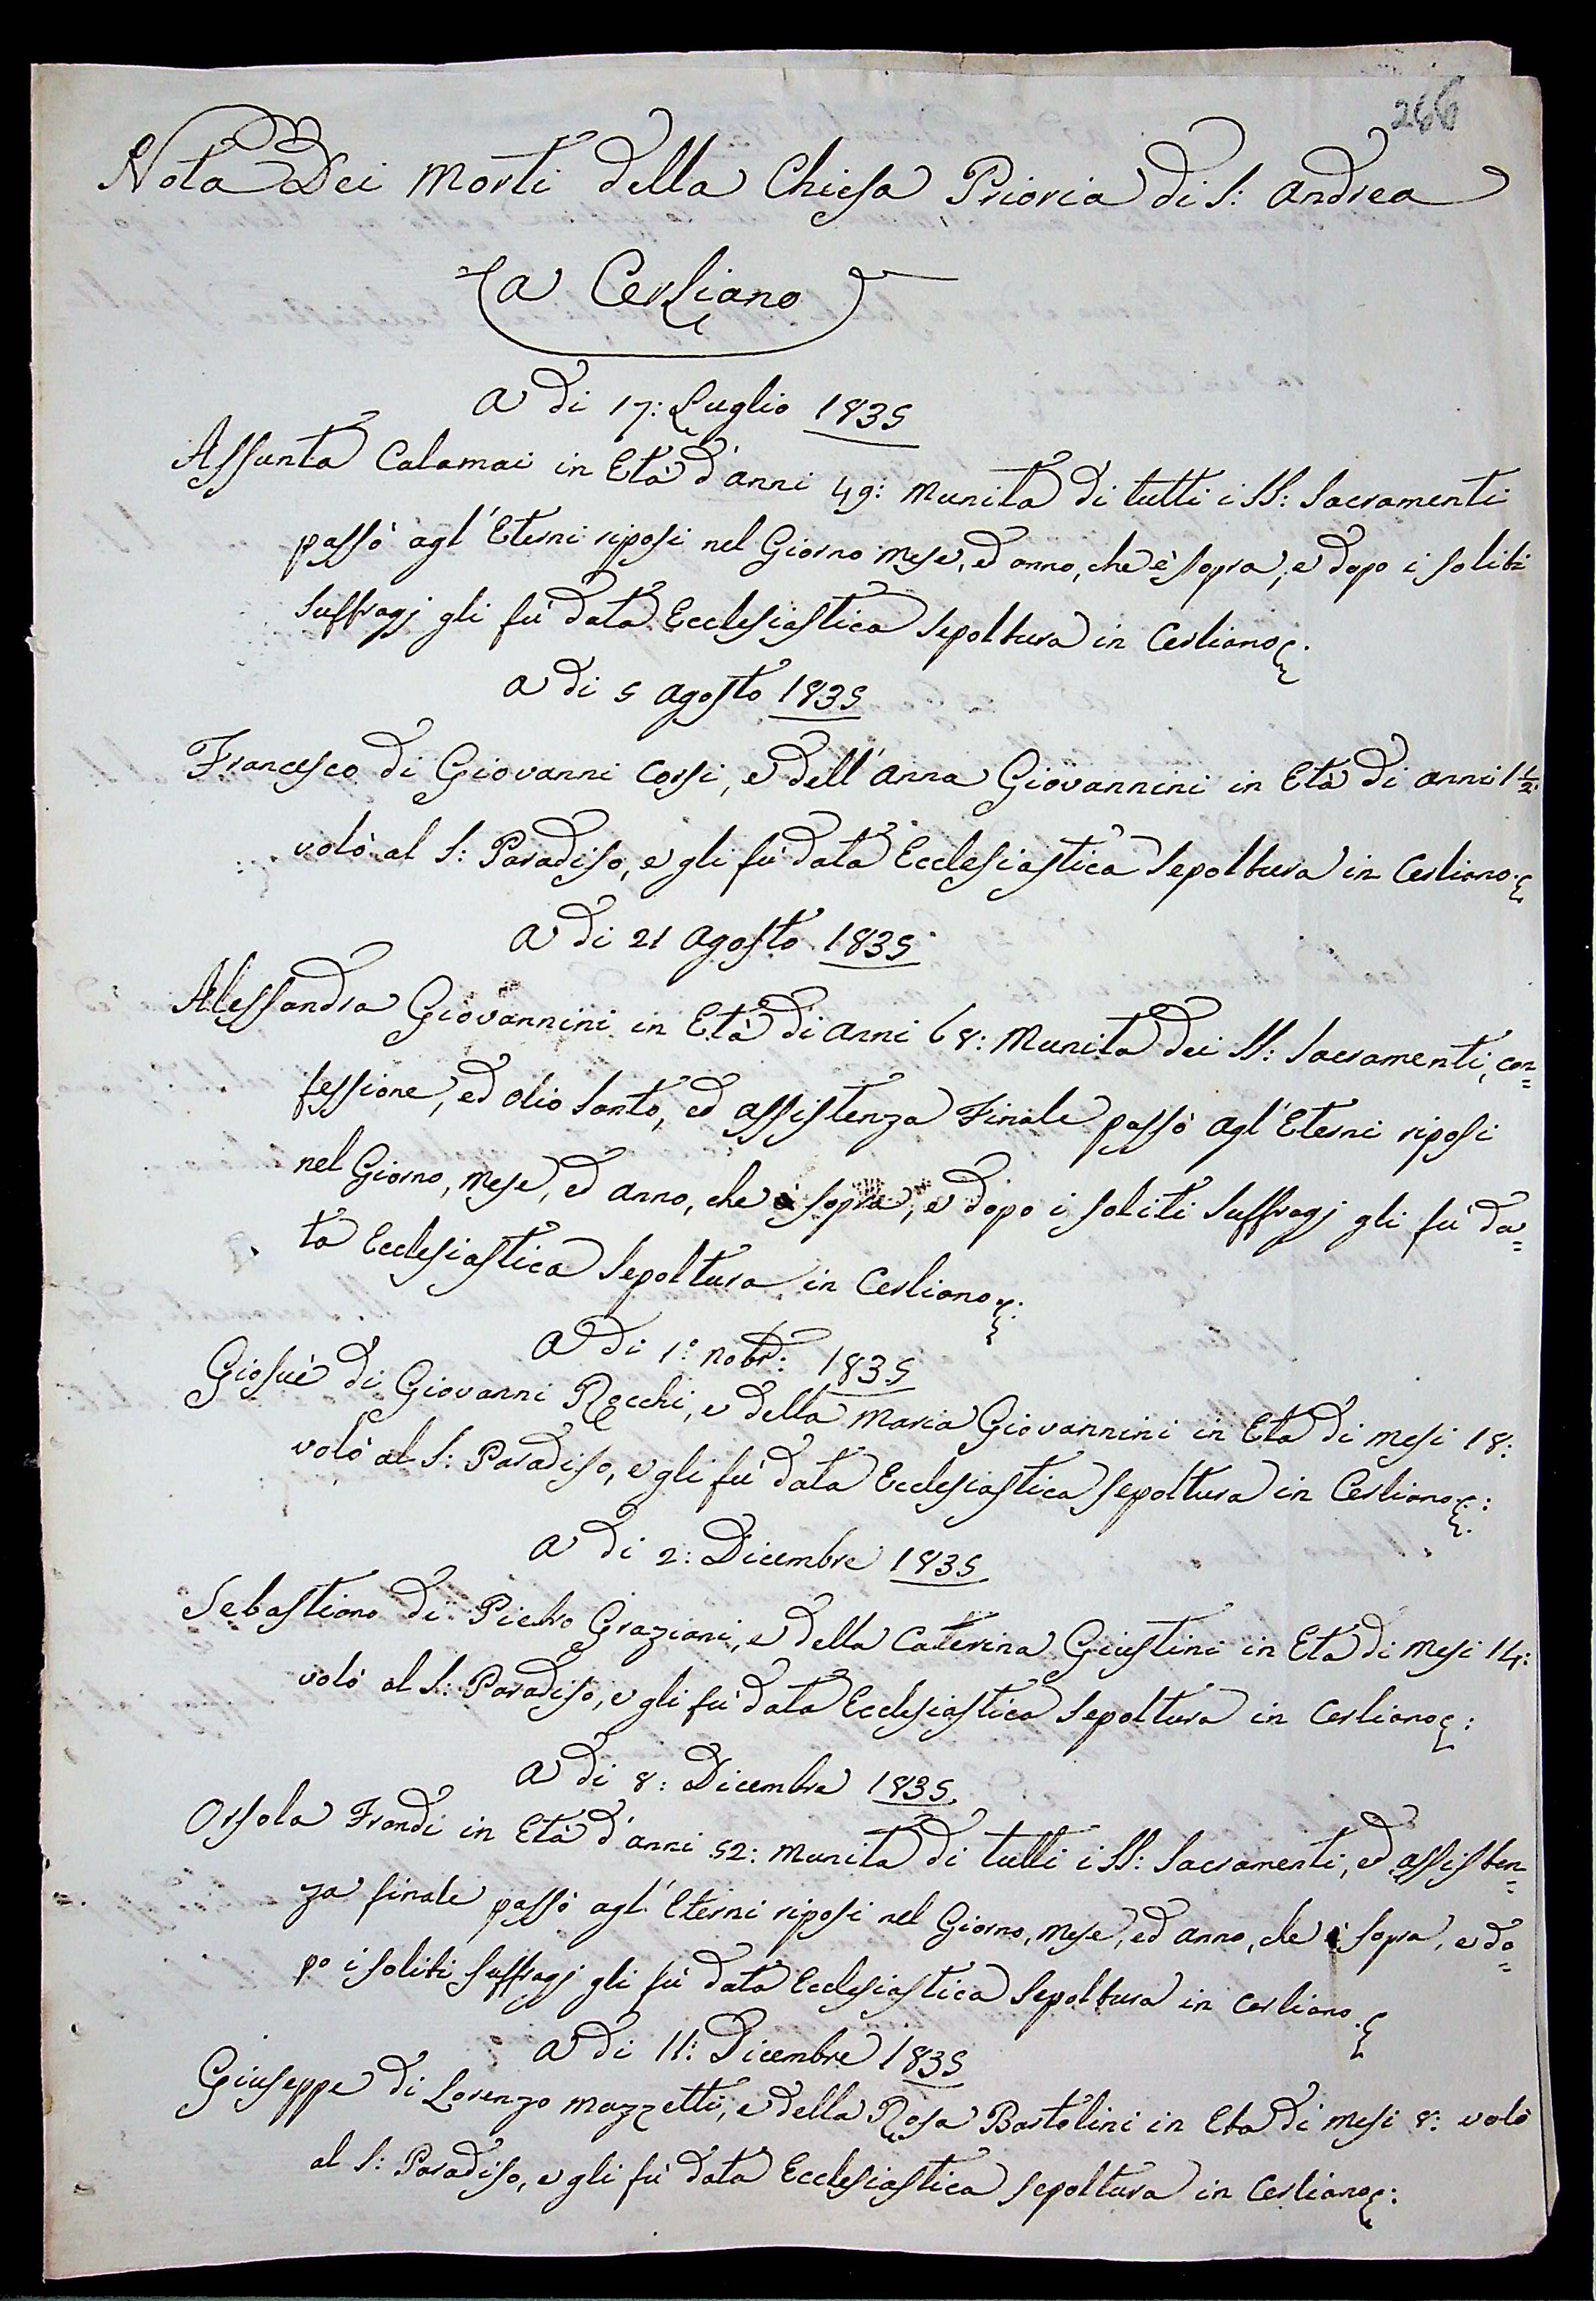 266
Nota Dei Morti della Chiesa Prioria di S: Andrea
a Cerliano
a di 17: Luglio 1835
Assunta Calamai in Età d'anni 49: Munita di tutti i SS: Sacramenti
passò agl'Eterni riposi nel Giorno Mese, ed anno, che è sopra, e dopo i soliti
suffragj gli fù data Ecclesiastica Sepoltura in Cerliano.
a di 5 Agosto 1835
Francesco di Giovanni Corsi, e dell'Anna Giovannini in Età di anni 1 1/2
volò al S: Paradiso, e gli fù data Ecclesiastica Sepoltura in Cerliano.
a di 21 Agosto 1835
Alessandra Giovannini in Età di anni 68: Munita dei SS: Sacramenti, con=
fessione, ed olio Santo, ed assistenza Finale passò agl'Eterni riposi
nel Giorno, Mese, ed anno, che è sopra, e dopo i soliti Suffragj gli fù da=
ta Ecclesiastica Sepoltura in Cerliano.
a di 1º Nobr: 1835
Giosuè di Giovanni Recchi, e della Maria Giovannini in Età di Mesi 18:
volò al S: Paradiso, e gli fù data Ecclesiastica Sepoltura in Cerliano:
a di 2: Dicembre 1835
Sebastiano di Pietro Graziani, e della Caterina Giustini in Età di Mesi 14:
volò al S: Paradiso, e gli fù data Ecclesiastica Sepoltura in Cerliano:
a di 8: Dicembre 1835
Orsola Frandi in Età d'anni 52: Munita di tutti i SS: Sacramenti, ed assisten=
za finale passò agl'Eterni riposi nel Giorno, Mese, ed anno, che è sopra, e do=
po i soliti suffragj gli fù data Ecclesiastica Sepoltura in Cerliano.
a di 11: Dicembre 1835
Giuseppe di Lorenzo Mazzetti, e della Rosa Bartolini in Età di Mesi 8: volò
al S: Paradiso, e gli fù data Ecclesiastica Sepoltura in Cerliano: